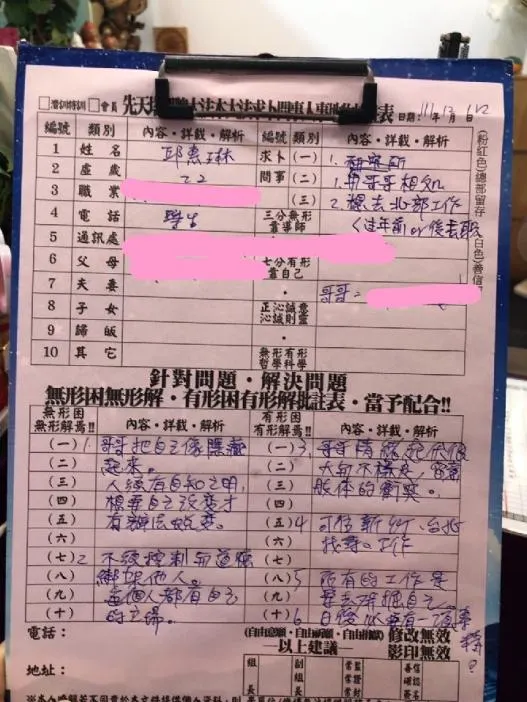 □潛訓特訓 □會員
日期：111年12月6日
編號 類別 內容・詳載・解析
1 姓名 邱惠琳
2 虛歲 22
3 職業
4 電話 學生
5 通訊處
6 父母
7 夫妻
8 子女
9 歸皈
10 其它
內容・詳載・解析
求卜（一）
問事（二） 1.與哥哥相處
（三） 2.想去北部工作
三分無形
靠導師
（過年前or後去
七分有形
靠自己
哥哥=
正沁誠意
沁誠則靈
無形有形
哲學科學
（粉紅色）總部留存
針對問題・解決問題
無形困無形解・有形困有形解批註表・當予配合!!
無形困
無形解焉!! 內容・詳載・解析
（一）1.哥哥把自己像隱藏
（二） 起來。
（三） 人總有自知之明，
（四） 想要自己改變才
（五） 有辦法改變。
（六）
（七）2 不能控制与道德
（八） 綁架他人。
（九） 每個人都有自己
（十） 的立場。
有形困
有形解焉!! 內容・詳載・解析
（一）3.哥哥情緒起伏很
（二） 大
（三） 肢体的衝突。
（四）
（五）4 可估新竹、台北
（六） 找尋。工作
（七）
（八）5 所有的工作是
（九）
（十）6 日後必要有一項專
精？
電話：
地址：
（自由意願・自由祈願・自由排獻）
—以上建議—
修改無效
影印無效
組長
副組長
常監
常證
常財
善信
確認
簽名